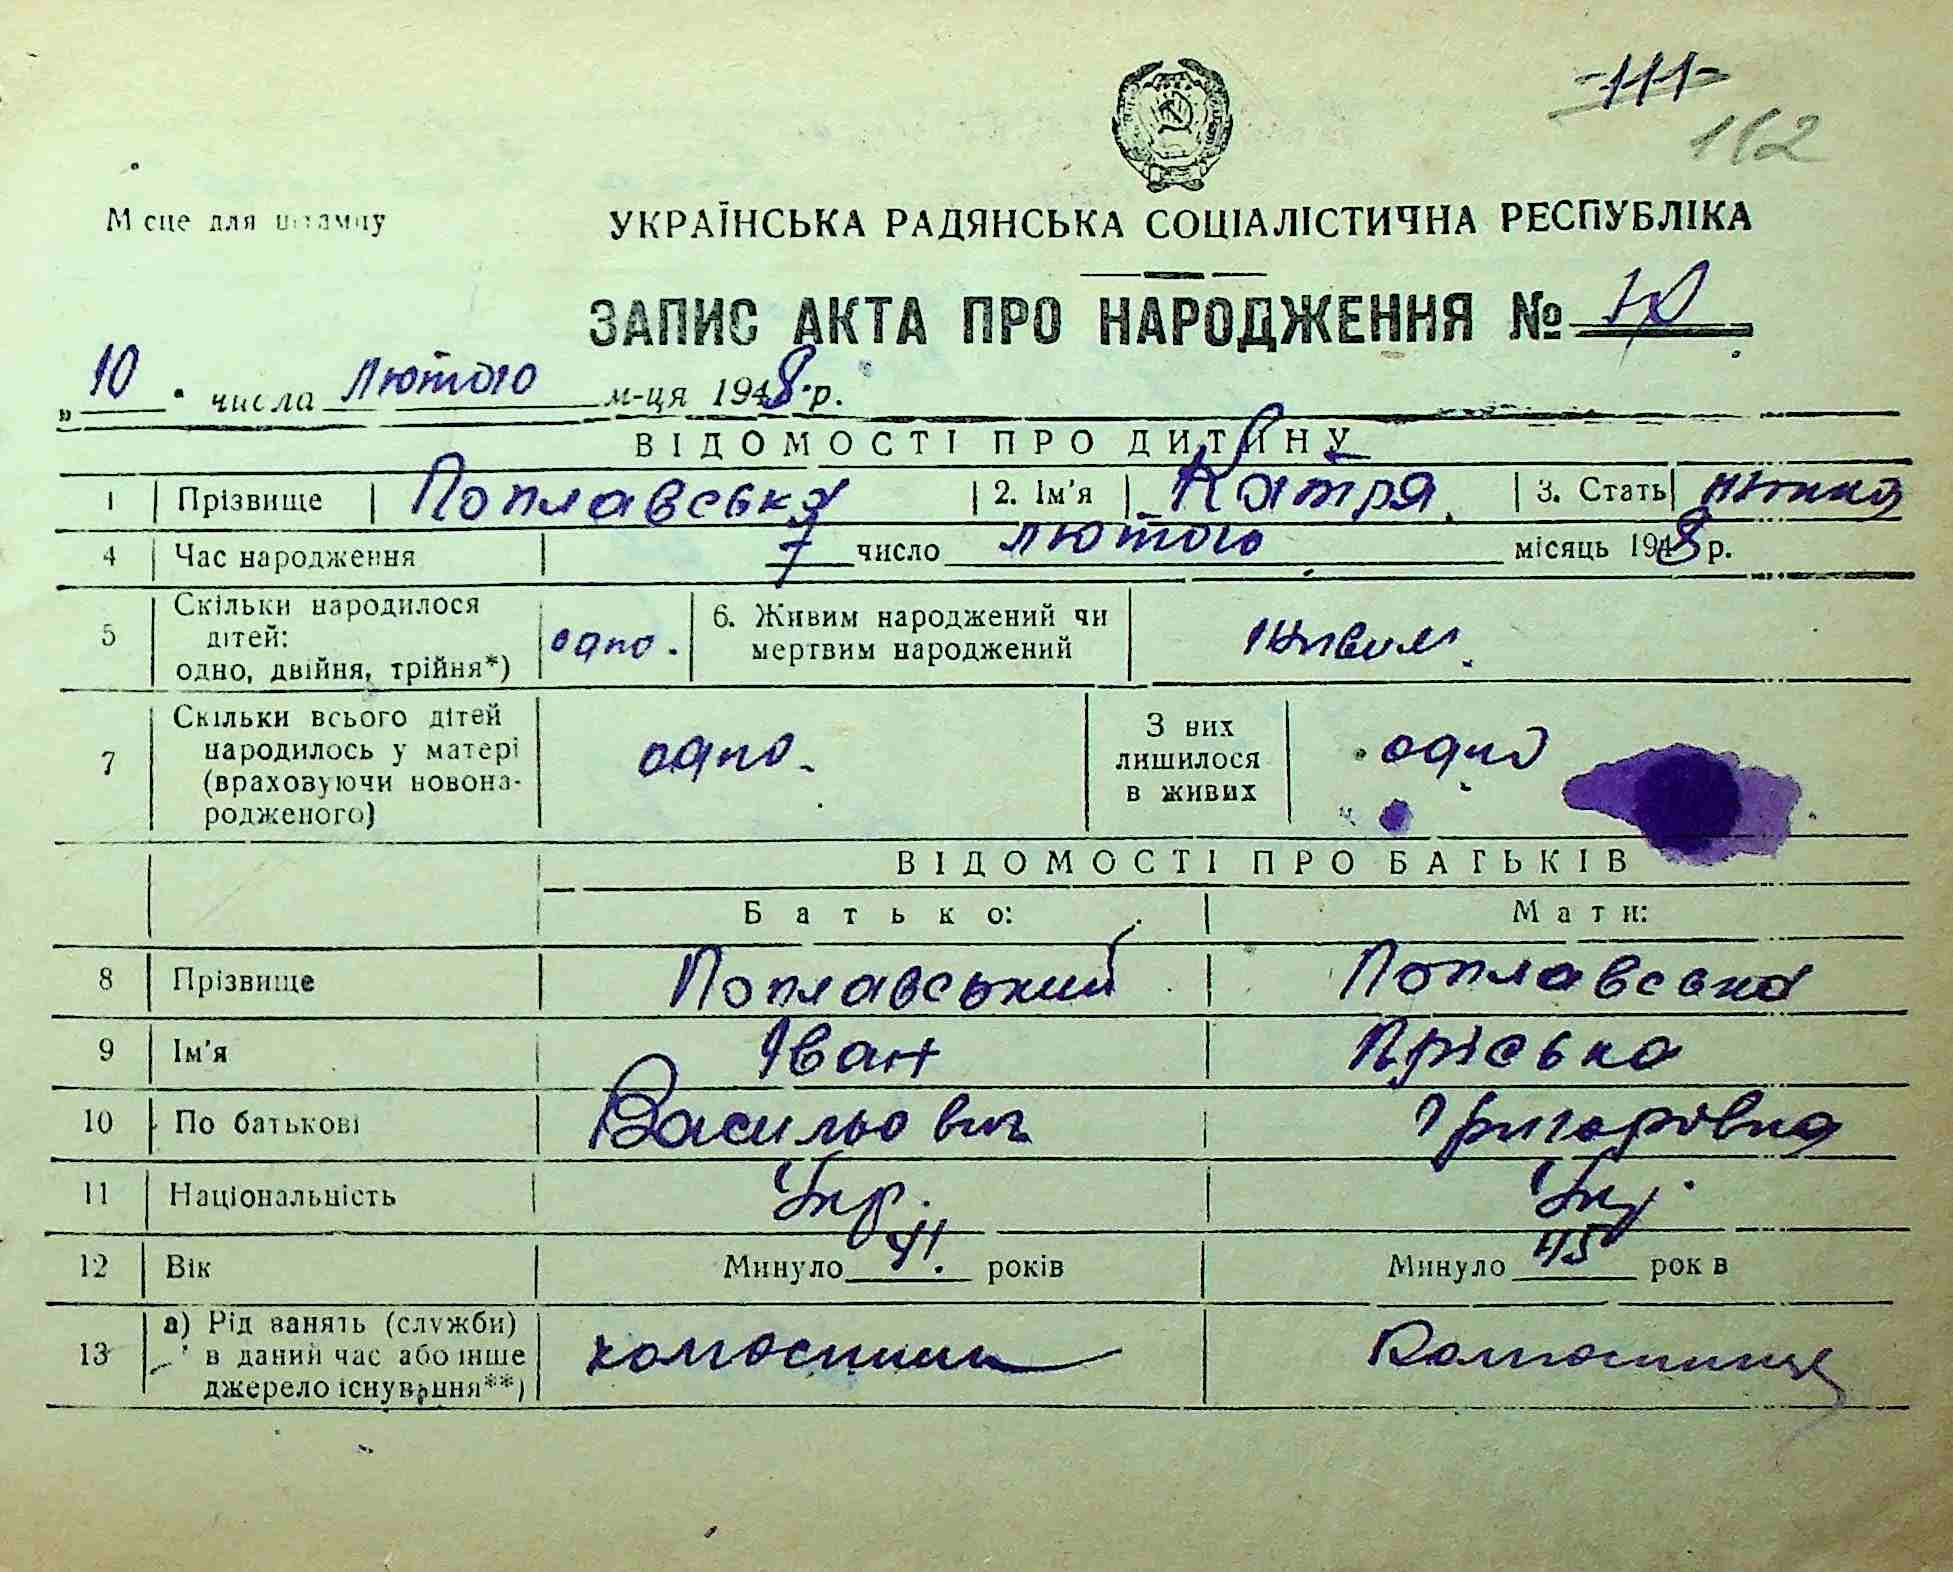 -111-
162
Місце для штампу
УКРАЇНСЬКА РАДЯНСЬКА СОЦІАЛІСТИЧНА РЕСПУБЛІКА
ЗАПИС АКТА ПРО НАРОДЖЕННЯ № 10
„ 10 " числа лютого м-ця 1948 р.
ВІДОМОСТІ ПРО ДИТИНУ
1 Прізвище Поплавська 2. Ім'я Катря 3. Стать жіноча
4 Час народження 7 число лютого місяць 1948 р.
5 Скільки народилося дітей: одно, двійня, трійня*) одно. 6. Живим народжений чи мертвим народжений живим.
7 Скільки всього дітей народилось у матері (враховуючи новонародженого) одно. З них лишилося в живих одно
ВІДОМОСТІ ПРО БАТЬКІВ
Батько: Мати:
8 Прізвище Поплавський Поплавська
9 Ім'я Іван Пріська
10 По батькові Васильович Григорівна
11 Національність Укр. Укр.
12 Вік Минуло 41. років Минуло 45 років
13 а) Рід занять (служби) в даний час або інше джерело існування**) колгоспник Колгоспниця